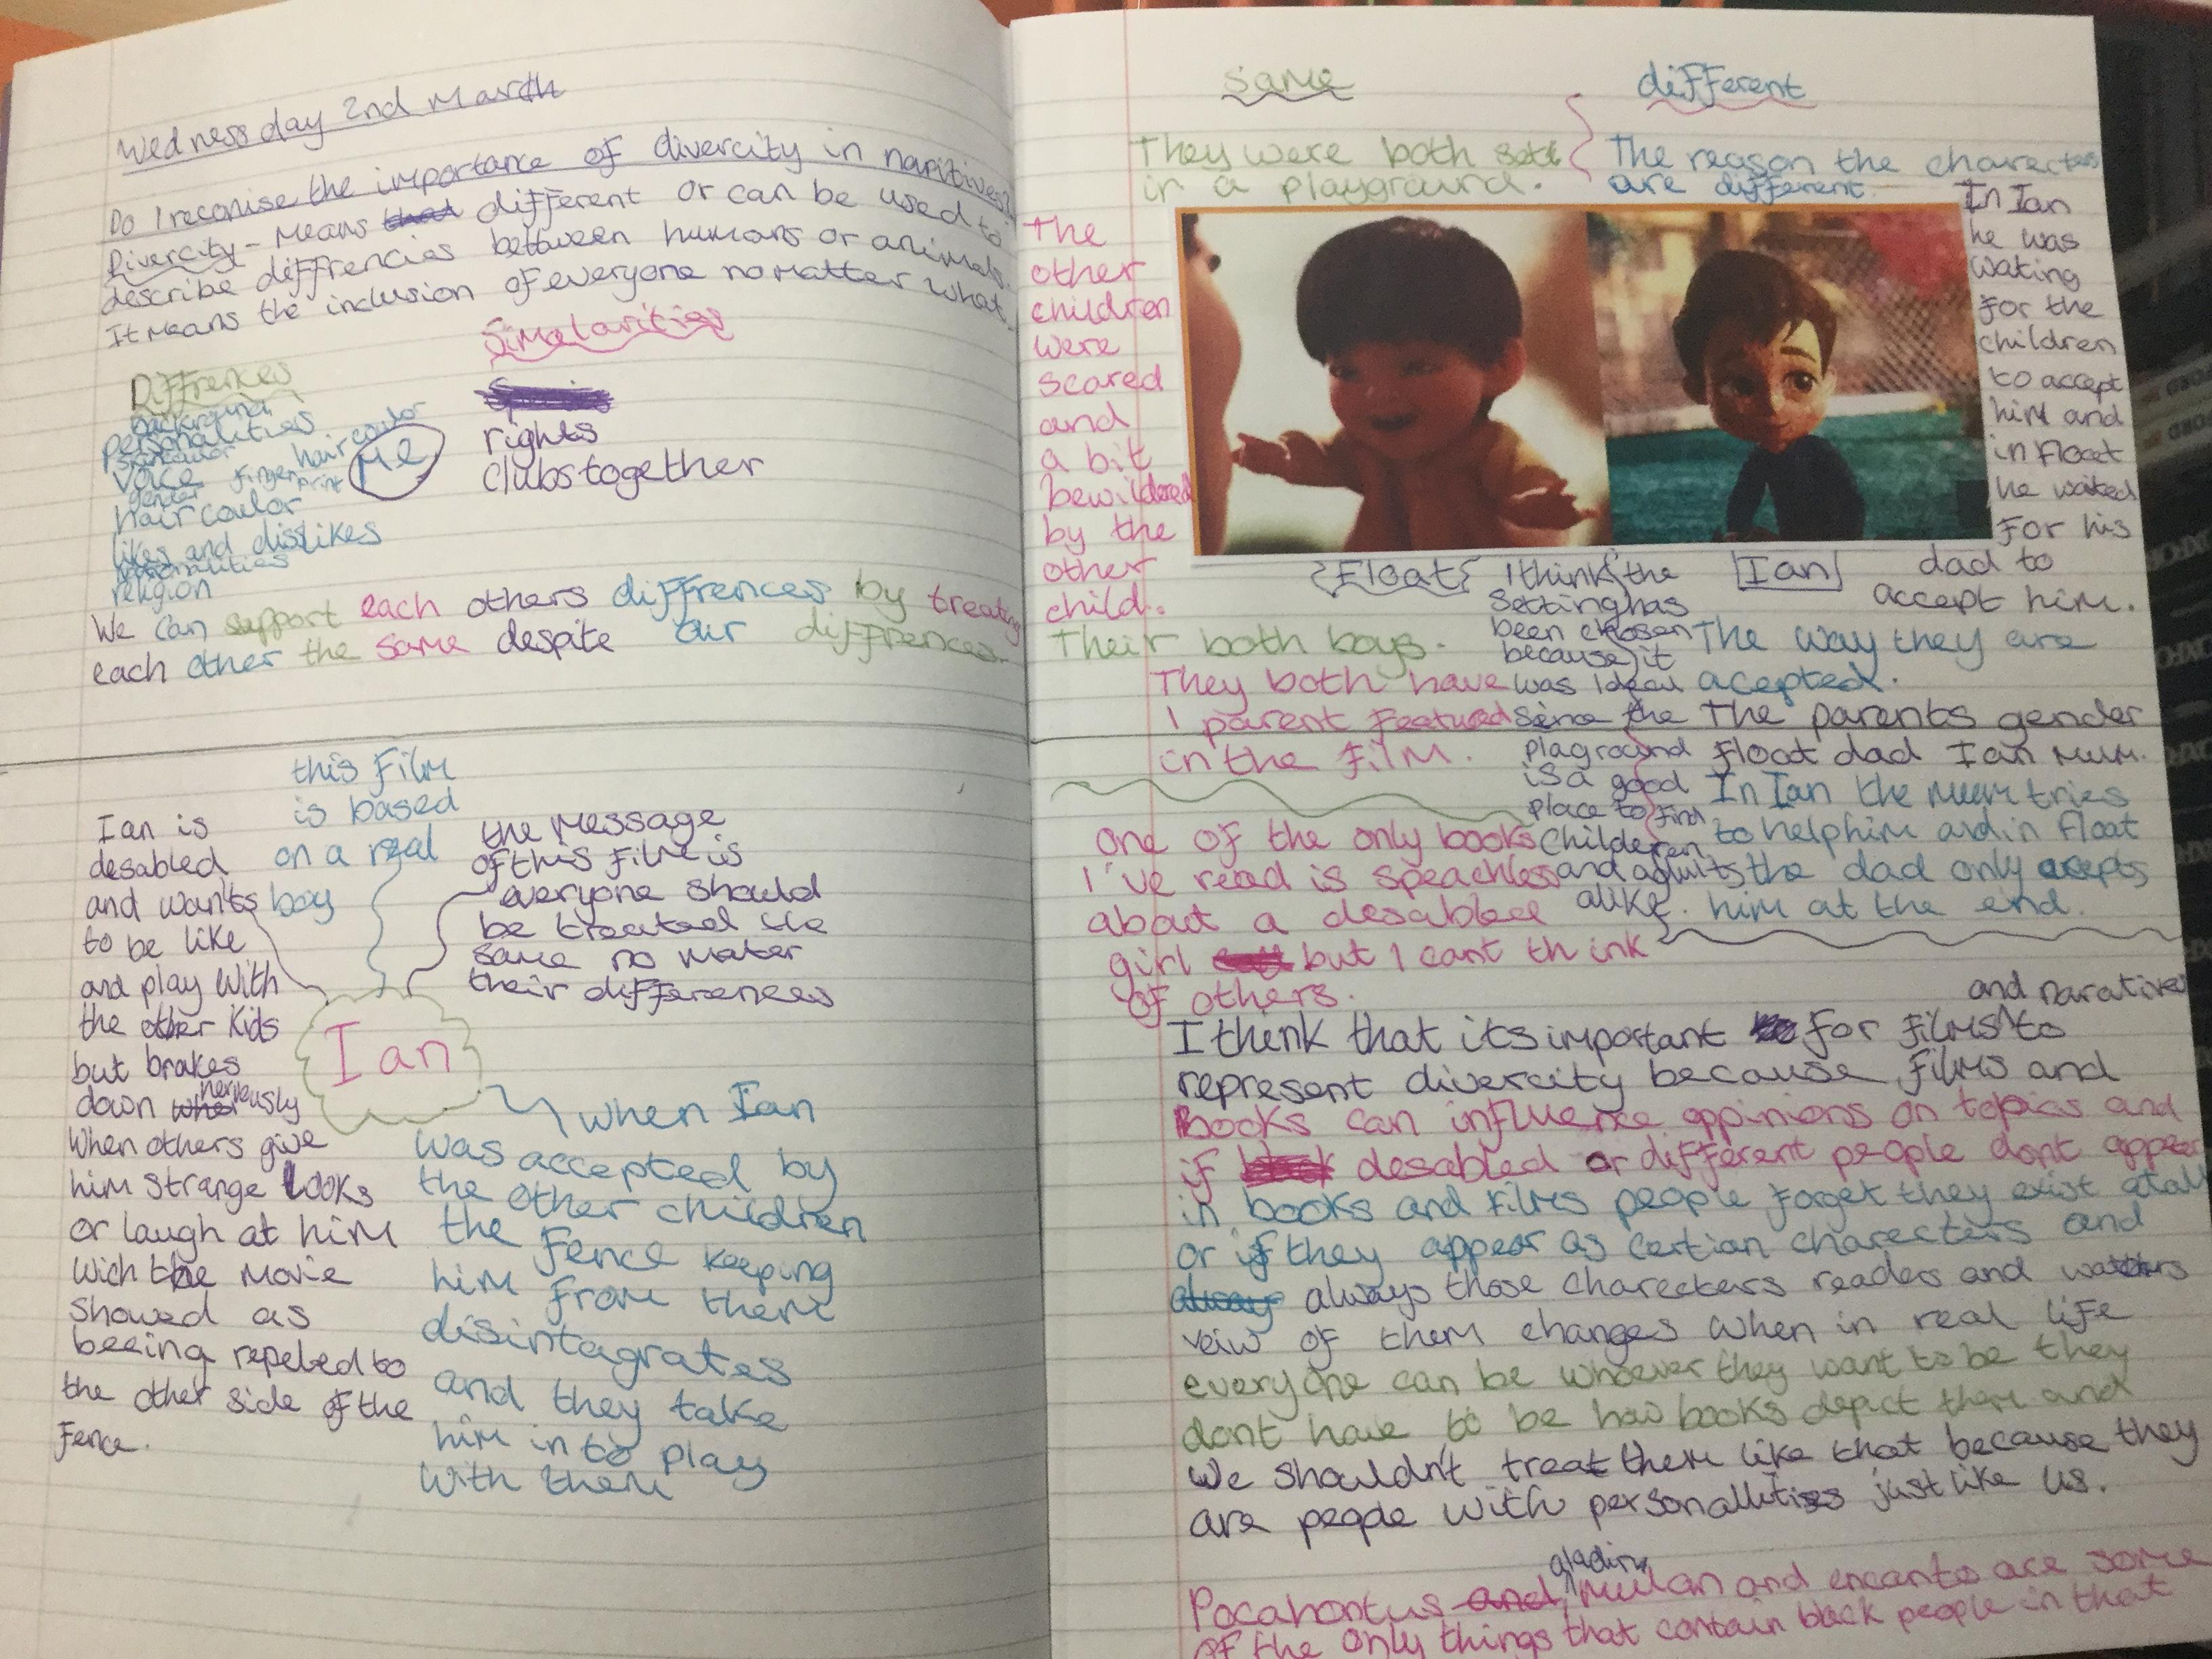 Wednessday 2nd March
Do I reconise the importance of divercity in naritives?
Divercity - Means that different or can be used to
describe diffrencies between humans or animals.
It means the inclusion of everyone no matter what.
Similarities
Diffrences
background
personalities
skin coulor
hair coulor
Me
voice
finger print
gender
hair coulor
likes and dislikes
religion
rights
clubs together
We can support each others diffrences by treating
each other the same despite our diffrences.
this film
is based
on a real
boy
Ian is
desabled
and wants
to be like
and play with
the other kids
but brakes
down nerveusly
when others give
him strange looks
or laugh at him
wich the movie
showed as
beeing repeled to
the other side of the
fence.
the message
of this film is
everyone should
be treated the
same no mater
their differences
Ian
when Ian
was accepted by
the other children
the fence keeping
him from them
disintagrates
and they take
him in to play
with them
same
They were both sett
in a playground.
different
The reason the charecters
are different.
The
other
children
were
scared
and
a bit
bewildered
by the
other
child.
In Ian
he was
wating
for the
children
to accept
him and
in Float
he waited
for his
dad to
accept him.
Float
Ian
I think the
setting has
been chosen
because it
was ideal
since the
plaground
is a good
place to find
childeren
and adults
alike.
Their both boys.
They both have
1 parent featured
in the film.
The way they are
acepted.
The parents gender
Float dad Ian mum.
In Ian the mum tries
to help him and in float
the dad only acepts
him at the end.
One of the only books
I've read is speachless
about a desabled
girl but I cant think
of others.
I think that its important for films and naratives to
represent divercity because films and
books can influence oppinions on topics and
if desabled or different people dont appear
in books and films people forget they exist atall
or if they appear as certian charecters and
always always those charecters readers and watchers
veiw of them changes when in real life
everyone can be whoever they want to be they
dont have to be how books depict them and
we shouldn't treat them like that because they
are people with personallitises just like us.
Pocahontus and aladin, Mulan and encanto are some
of the only things that contain black people in that